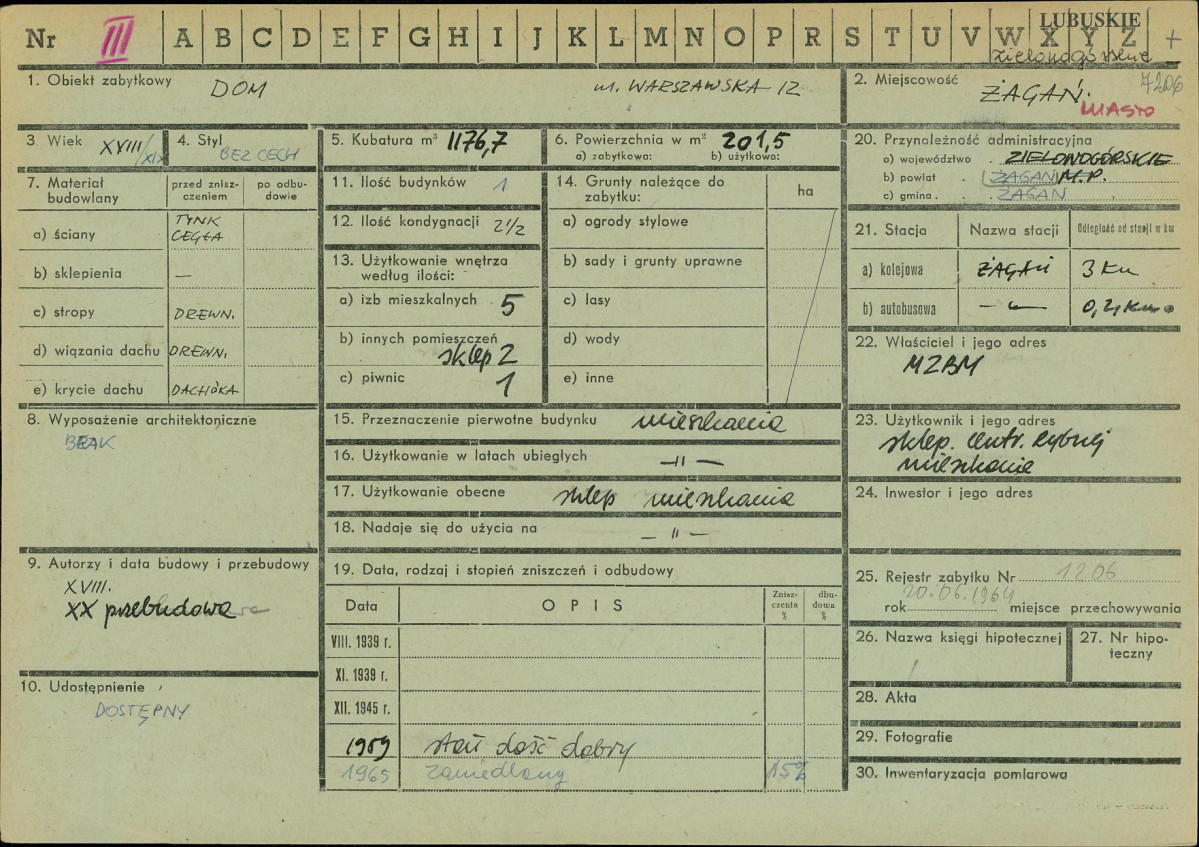 Nr III A B C D E F G H I J K L M N O P R S T U V W X Y Z +
LUBUSKIE
zielonogórskie
1. Obiekt zabytkowy DOM ul. WARSZAWSKA 12
2. Miejscowość ŻAGAŃ. 7206
MIASTO
3. Wiek XVIII/XIX
4. Styl BEZ CECH
5. Kubatura m³ 1176,7
6. Powierzchnia w m² 201,5
a) zabytkowa: b) użytkowa:
7. Materiał budowlany
przed zniszczeniem
po odbudowie
a) ściany TYNK
CEGŁA
b) sklepienia —
c) stropy DREWN.
d) wiązania dachu DREWN.
e) krycie dachu DACHÓKA
8. Wyposażenie architektoniczne
BRAK
9. Autorzy i data budowy i przebudowy
XVIII.
XX przebudowa
10. Udostępnienie
DOSTĘPNY
11. Ilość budynków 1
12. Ilość kondygnacji 2 1/2
13. Użytkowanie wnętrza
według ilości:
a) izb mieszkalnych 5
b) innych pomieszczeń
sklep 2
c) piwnic 1
14. Grunty należące do
zabytku:
ha
a) ogrody stylowe
b) sady i grunty uprawne
c) lasy
d) wody
e) inne
15. Przeznaczenie pierwotne budynku mieszkania
16. Użytkowanie w latach ubiegłych —"—
17. Użytkowanie obecne sklep mieszkania
18. Nadaje się do użycia na —"—
19. Data, rodzaj i stopień zniszczeń i odbudowy
Data OPIS Zniszczenia % dbudowa %
VIII. 1939 r.
XI. 1939 r.
XII. 1945 r.
1959 stan dość dobry
1965 zaniedbany 15%
20. Przynależność administracyjna
a) województwo . ZIELONOGÓRSKIE
b) powiat . ŻAGAŃ M.P.
c) gmina . ŻAGAŃ
21. Stacja Nazwa stacji Odległość od stacji w km
a) kolejowa ŻAGAŃ 3 km
b) autobusowa —"— 0,2 km
22. Właściciel i jego adres
MZBM
23. Użytkownik i jego adres
sklep. centr. rybnej
mieszkanie
24. Inwestor i jego adres
25. Rejestr zabytku Nr 1206
20.06.1964
rok miejsce przechowywania
26. Nazwa księgi hipotecznej
27. Nr hipoteczny
28. Akta
29. Fotografie
30. Inwentaryzacja pomiarowa